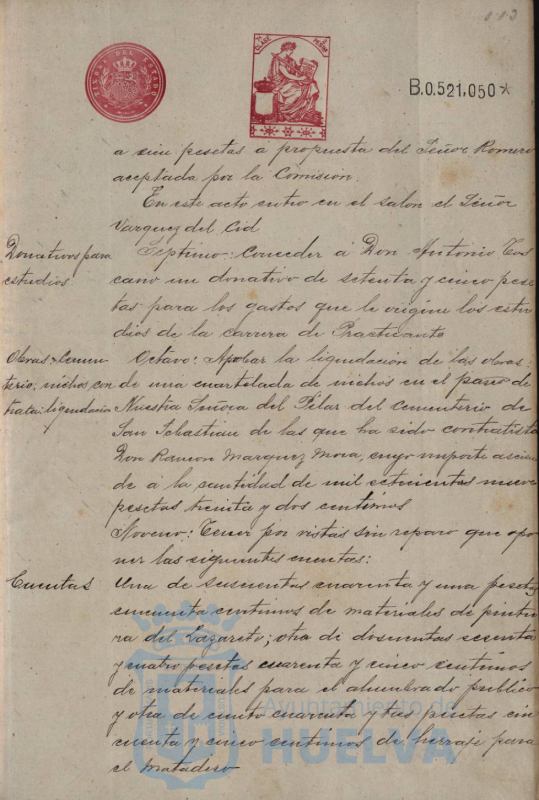 113
TIMBRE DEL ESTADO
B.0.521.050*
a cien pesetas á propuesta del Señor Romero
aceptada por la Comision.
En este acto entro en el salon el Señor
Vazquez del Cid
Donativos para
estudios
Septimo: Conceder á Don Antonio Tos
cano un donativo de setenta y cinco pese
tas para los gastos que le origine los estu
dios de la carrera de Practicante
Obras Cemen-
terio, nichos con
trata: liquidacion
Octavo: Aprobar la liquidacion de las obras
de una cuartelada de nichos en el paseo de
Nuestra Señora del Pilar del Cementerio de
San Sebastian de las que ha sido contratista
Don Ramon Marquez Mora, cuyo importe ascien
de á la cantidad de mil setecientas nueve
pesetas treinta y dos centimos
Noveno: Tener por vistas sin reparo que opo
ner las siguientes cuentas:
Cuentas
Una de doscientas cuarenta y una pesetas
cincuenta centimos de materiales de pintu
ra del Lazareto; otra de doscientas sesenta
y cuatro pesetas cuarenta y cinco centimos
de materiales para el alumbrado publico
y otra de ciento cuarenta y tres pesetas cin
cuenta y cinco centimos de herraje para
el Matadero
Ayuntamiento de
HUELVA